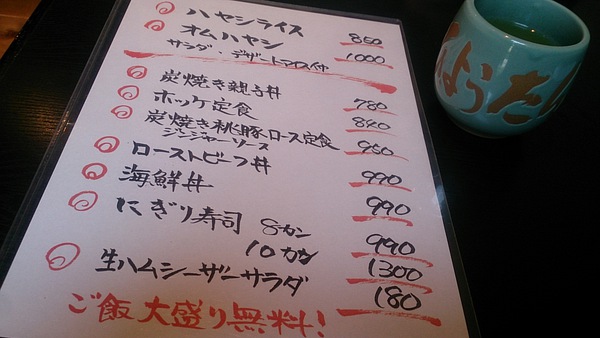 ハヤシライス 850
オムハヤシ 1000
サラダ・デザートライス付
炭焼き親子丼 780
ホッケ定食 840
炭焼き桃豚ロース定食 950
ジンジャーソース
ローストビーフ丼 990
海鮮丼 990
にぎり寿司 8カン 990
10カン 1300
生ハムシーザーサラダ 180
ご飯大盛り無料!